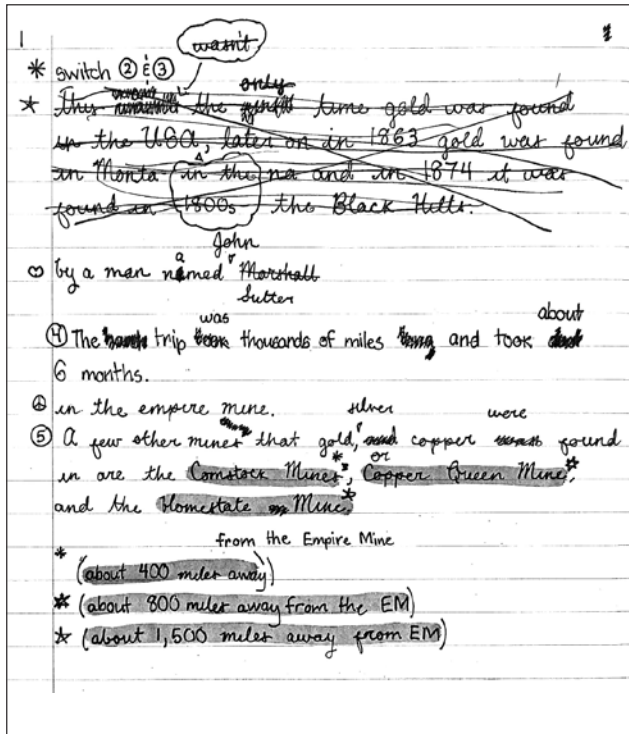 1
wasn't
* switch ② & ③
only
☆ This the time gold was found
in the USA, later on in 1863 gold was found
in Monta in the na and in 1874 it was
found in 1800s the Black Hills.
John
♡ by a man named Marshall
Sutter
was about
④ The trip took thousands of miles and took
6 months.
☮ in the empire mine. silver were
⑤ A few other mines that gold, and copper found
or
in are the Comstock Mines*, Copper Queen Mine☆,
and the Homestate Mine☆
from the Empire Mine
* (about 400 miles away)
☆ (about 800 miles away from the EM)
☆ (about 1,500 miles away from EM)